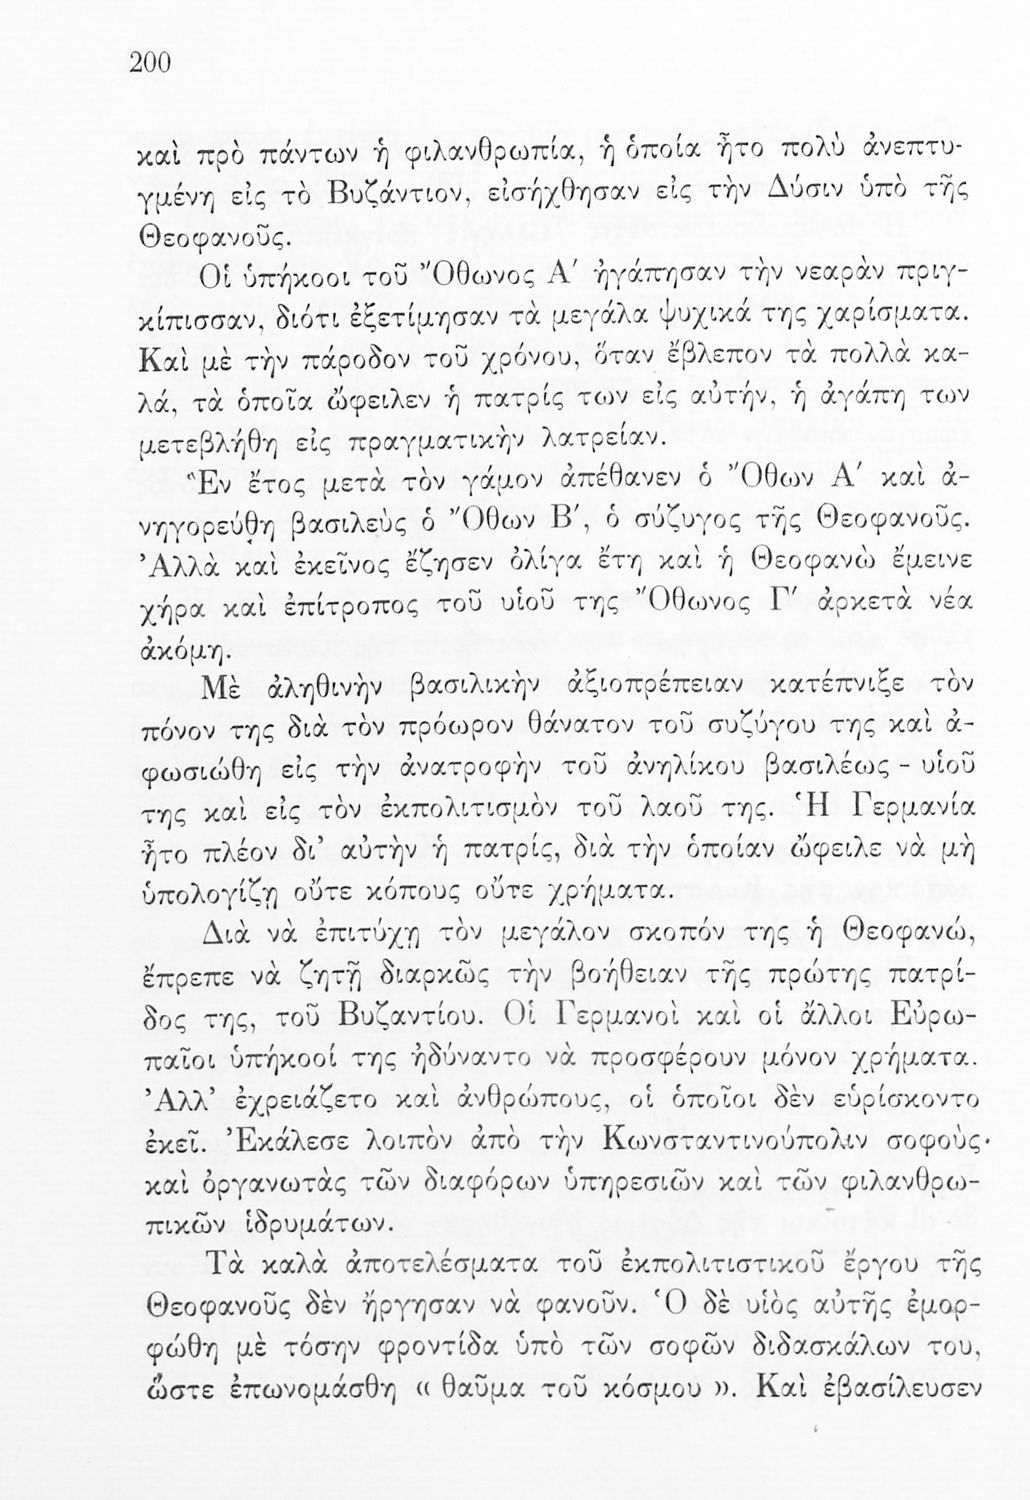 200
καὶ πρὸ πάντων ἡ φιλανθρωπία, ἡ ὁποία ἦτο πολὺ ἀνεπτυ-
γμένη εἰς τὸ Βυζάντιον, εἰσήχθησαν εἰς τὴν Δύσιν ὑπὸ τῆς
Θεοφανοῦς.
Οἱ ὑπήκοοι τοῦ Ὄθωνος Α΄ ἠγάπησαν τὴν νεαρὰν πριγ-
κίπισσαν, διότι ἐξετίμησαν τὰ μεγάλα ψυχικά της χαρίσματα.
Καὶ μὲ τὴν πάροδον τοῦ χρόνου, ὅταν ἔβλεπον τὰ πολλὰ κα-
λά, τὰ ὁποῖα ὤφειλεν ἡ πατρίς των εἰς αὐτήν, ἡ ἀγάπη των
μετεβλήθη εἰς πραγματικὴν λατρείαν.
Ἓν ἔτος μετὰ τὸν γάμον ἀπέθανεν ὁ Ὄθων Α΄ καὶ ἀ-
νηγορεύθη βασιλεὺς ὁ Ὄθων Β΄, ὁ σύζυγος τῆς Θεοφανοῦς.
Ἀλλὰ καὶ ἐκεῖνος ἔζησεν ὀλίγα ἔτη καὶ ἡ Θεοφανὼ ἔμεινε
χήρα καὶ ἐπίτροπος τοῦ υἱοῦ της Ὄθωνος Γ΄ ἀρκετὰ νέα
ἀκόμη.
Μὲ ἀληθινὴν βασιλικὴν ἀξιοπρέπειαν κατέπνιξε τὸν
πόνον της διὰ τὸν πρόωρον θάνατον τοῦ συζύγου της καὶ ἀ-
φωσιώθη εἰς τὴν ἀνατροφὴν τοῦ ἀνηλίκου βασιλέως - υἱοῦ
της καὶ εἰς τὸν ἐκπολιτισμὸν τοῦ λαοῦ της. Ἡ Γερμανία
ἦτο πλέον δι’ αὐτὴν ἡ πατρίς, διὰ τὴν ὁποίαν ὤφειλε νὰ μὴ
ὑπολογίζῃ οὔτε κόπους οὔτε χρήματα.
Διὰ νὰ ἐπιτύχῃ τὸν μεγάλον σκοπόν της ἡ Θεοφανώ,
ἔπρεπε νὰ ζητῇ διαρκῶς τὴν βοήθειαν τῆς πρώτης πατρί-
δος της, τοῦ Βυζαντίου. Οἱ Γερμανοὶ καὶ οἱ ἄλλοι Εὐρω-
παῖοι ὑπήκοοί της ἠδύναντο νὰ προσφέρουν μόνον χρήματα.
Ἀλλ’ ἐχρειάζετο καὶ ἀνθρώπους, οἱ ὁποῖοι δὲν εὑρίσκοντο
ἐκεῖ. Ἐκάλεσε λοιπὸν ἀπὸ τὴν Κωνσταντινούπολιν σοφοὺς·
καὶ ὀργανωτὰς τῶν διαφόρων ὑπηρεσιῶν καὶ τῶν φιλανθρω-
πικῶν ἱδρυμάτων.
Τὰ καλὰ ἀποτελέσματα τοῦ ἐκπολιτιστικοῦ ἔργου τῆς
Θεοφανοῦς δὲν ἤργησαν νὰ φανοῦν. Ὁ δὲ υἱὸς αὐτῆς ἐμορ-
φώθη μὲ τόσην φροντίδα ὑπὸ τῶν σοφῶν διδασκάλων του,
ὥστε ἐπωνομάσθη « θαῦμα τοῦ κόσμου ». Καὶ ἐβασίλευσεν